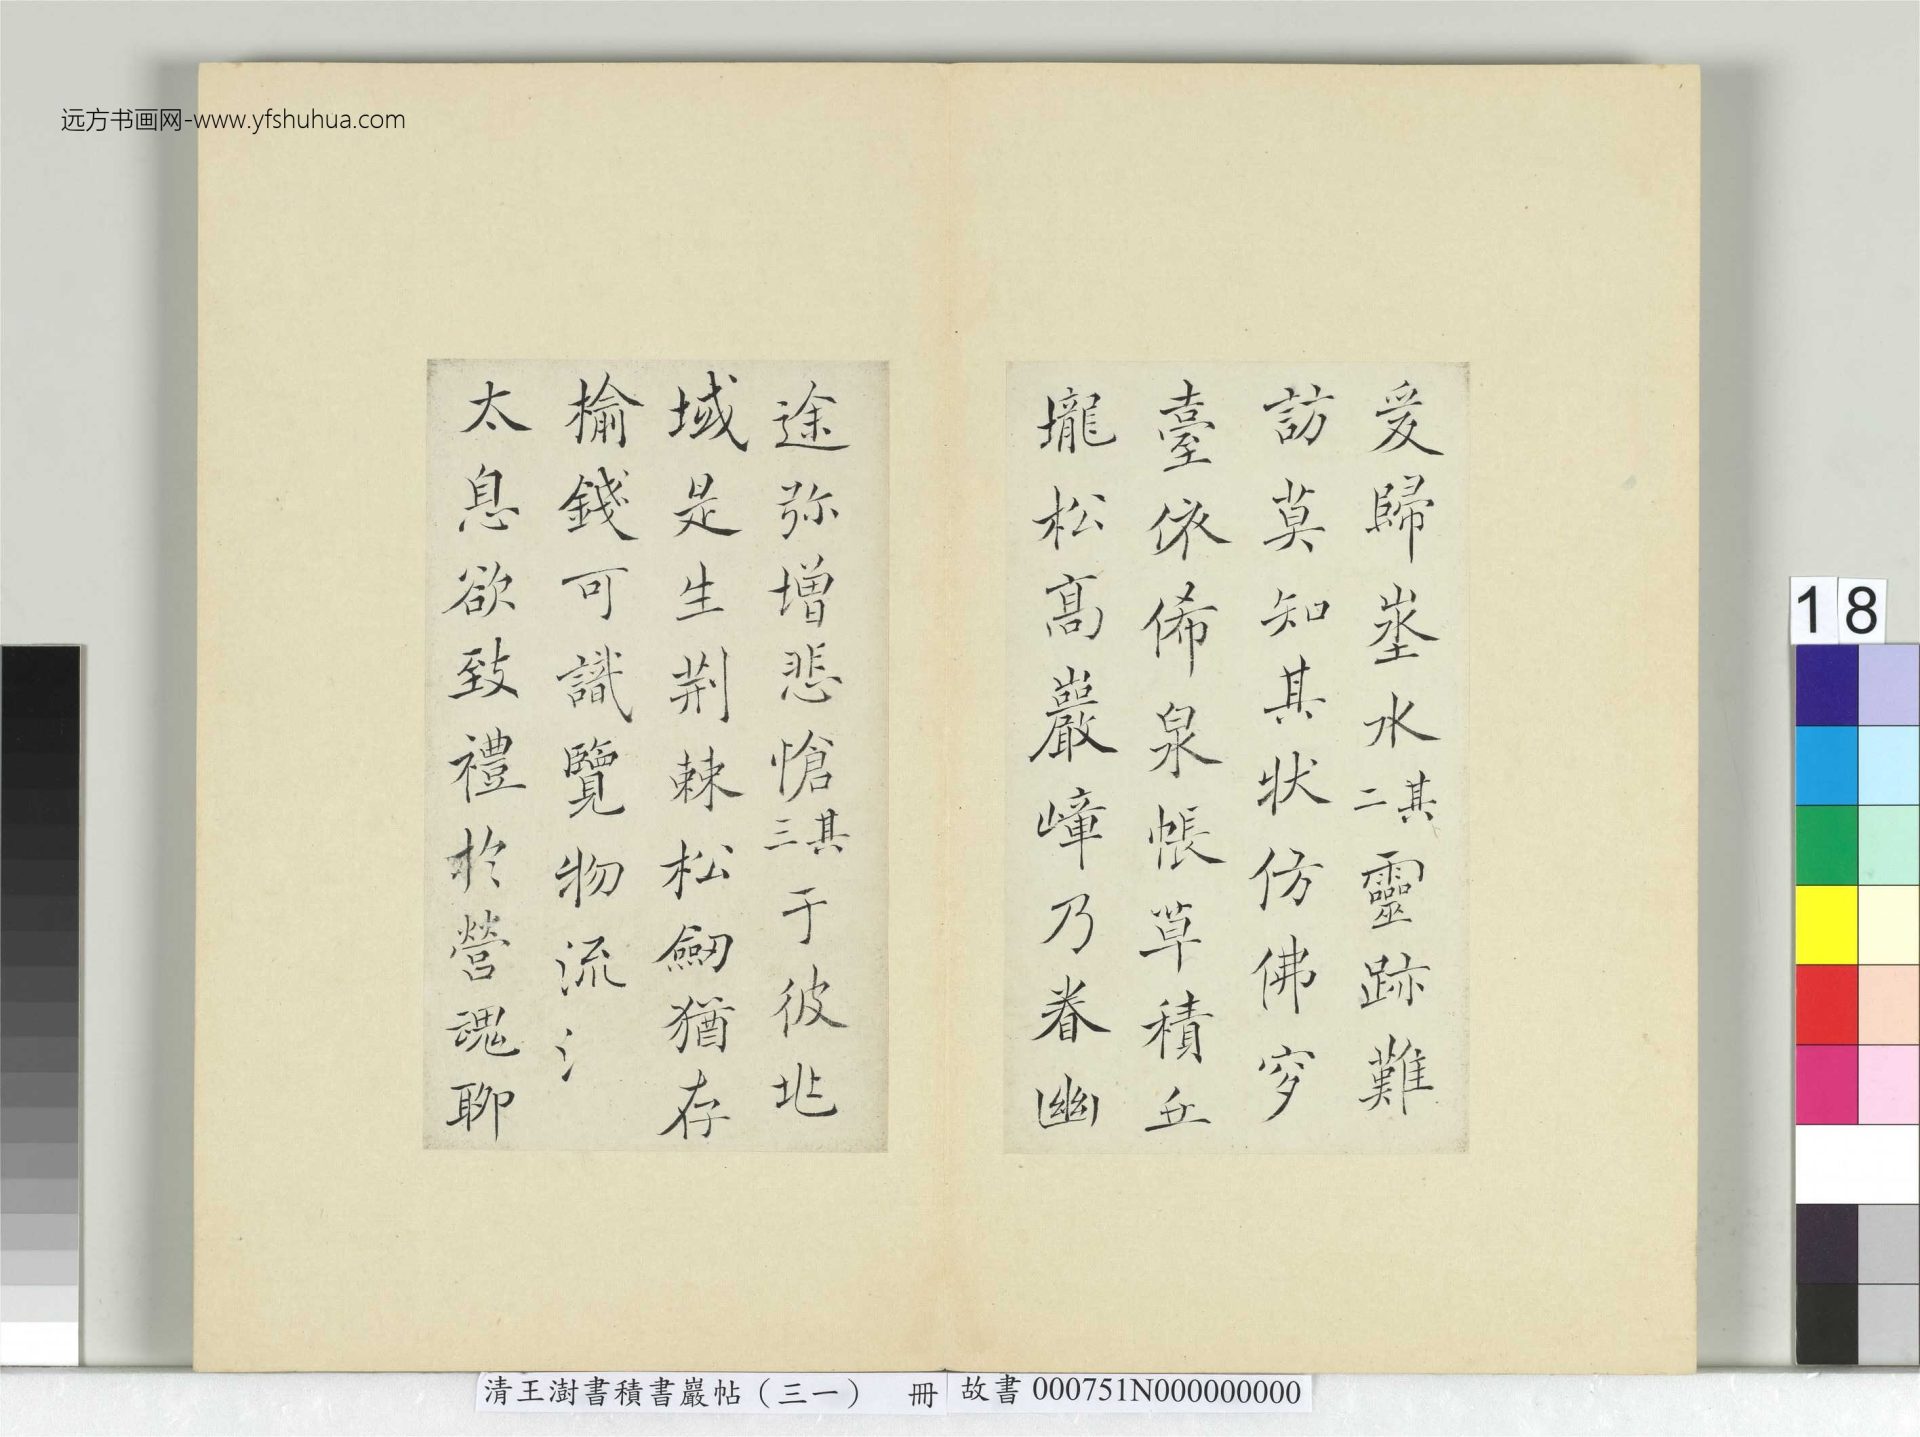 远方书画网-www.yfshuhua.com
爰歸𡍮水其二靈跡難
訪莫知其状仿佛穸
臺依俙泉帳草積丘
壠松髙巖嶂乃眷幽
途弥增悲愴其三于彼兆
域是生荆棘松劒猶存
榆錢可識覽物流氵
太息欲致禮於營魂聊
18
清王澍書積書巖帖（三一） 冊 故書 000751N000000000